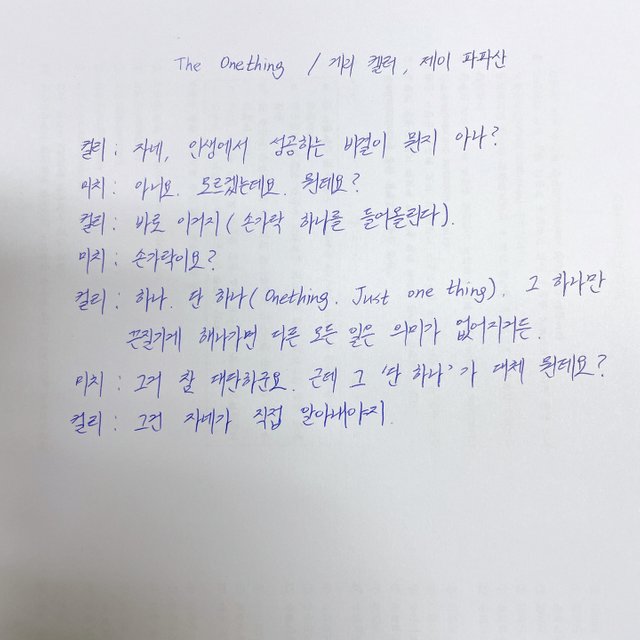 The Onething / 게리 켈러, 제이 파파산
컬리 : 자네, 인생에서 성공하는 비결이 뭔지 아나?
미치 : 아니요. 모르겠는데요. 뭔데요?
컬리 : 바로 이거지(손가락 하나를 들어올린다).
미치 : 손가락이요?
컬리 : 하나. 단 하나(Onething. Just one thing). 그 하나만
끈질기게 해나가면 다른 모든 일은 의미가 없어지거든.
미치 : 그거 참 대단하군요. 근데 그 '단 하나'가 대체 뭔데요?
컬리 : 그건 자네가 직접 알아내야지.